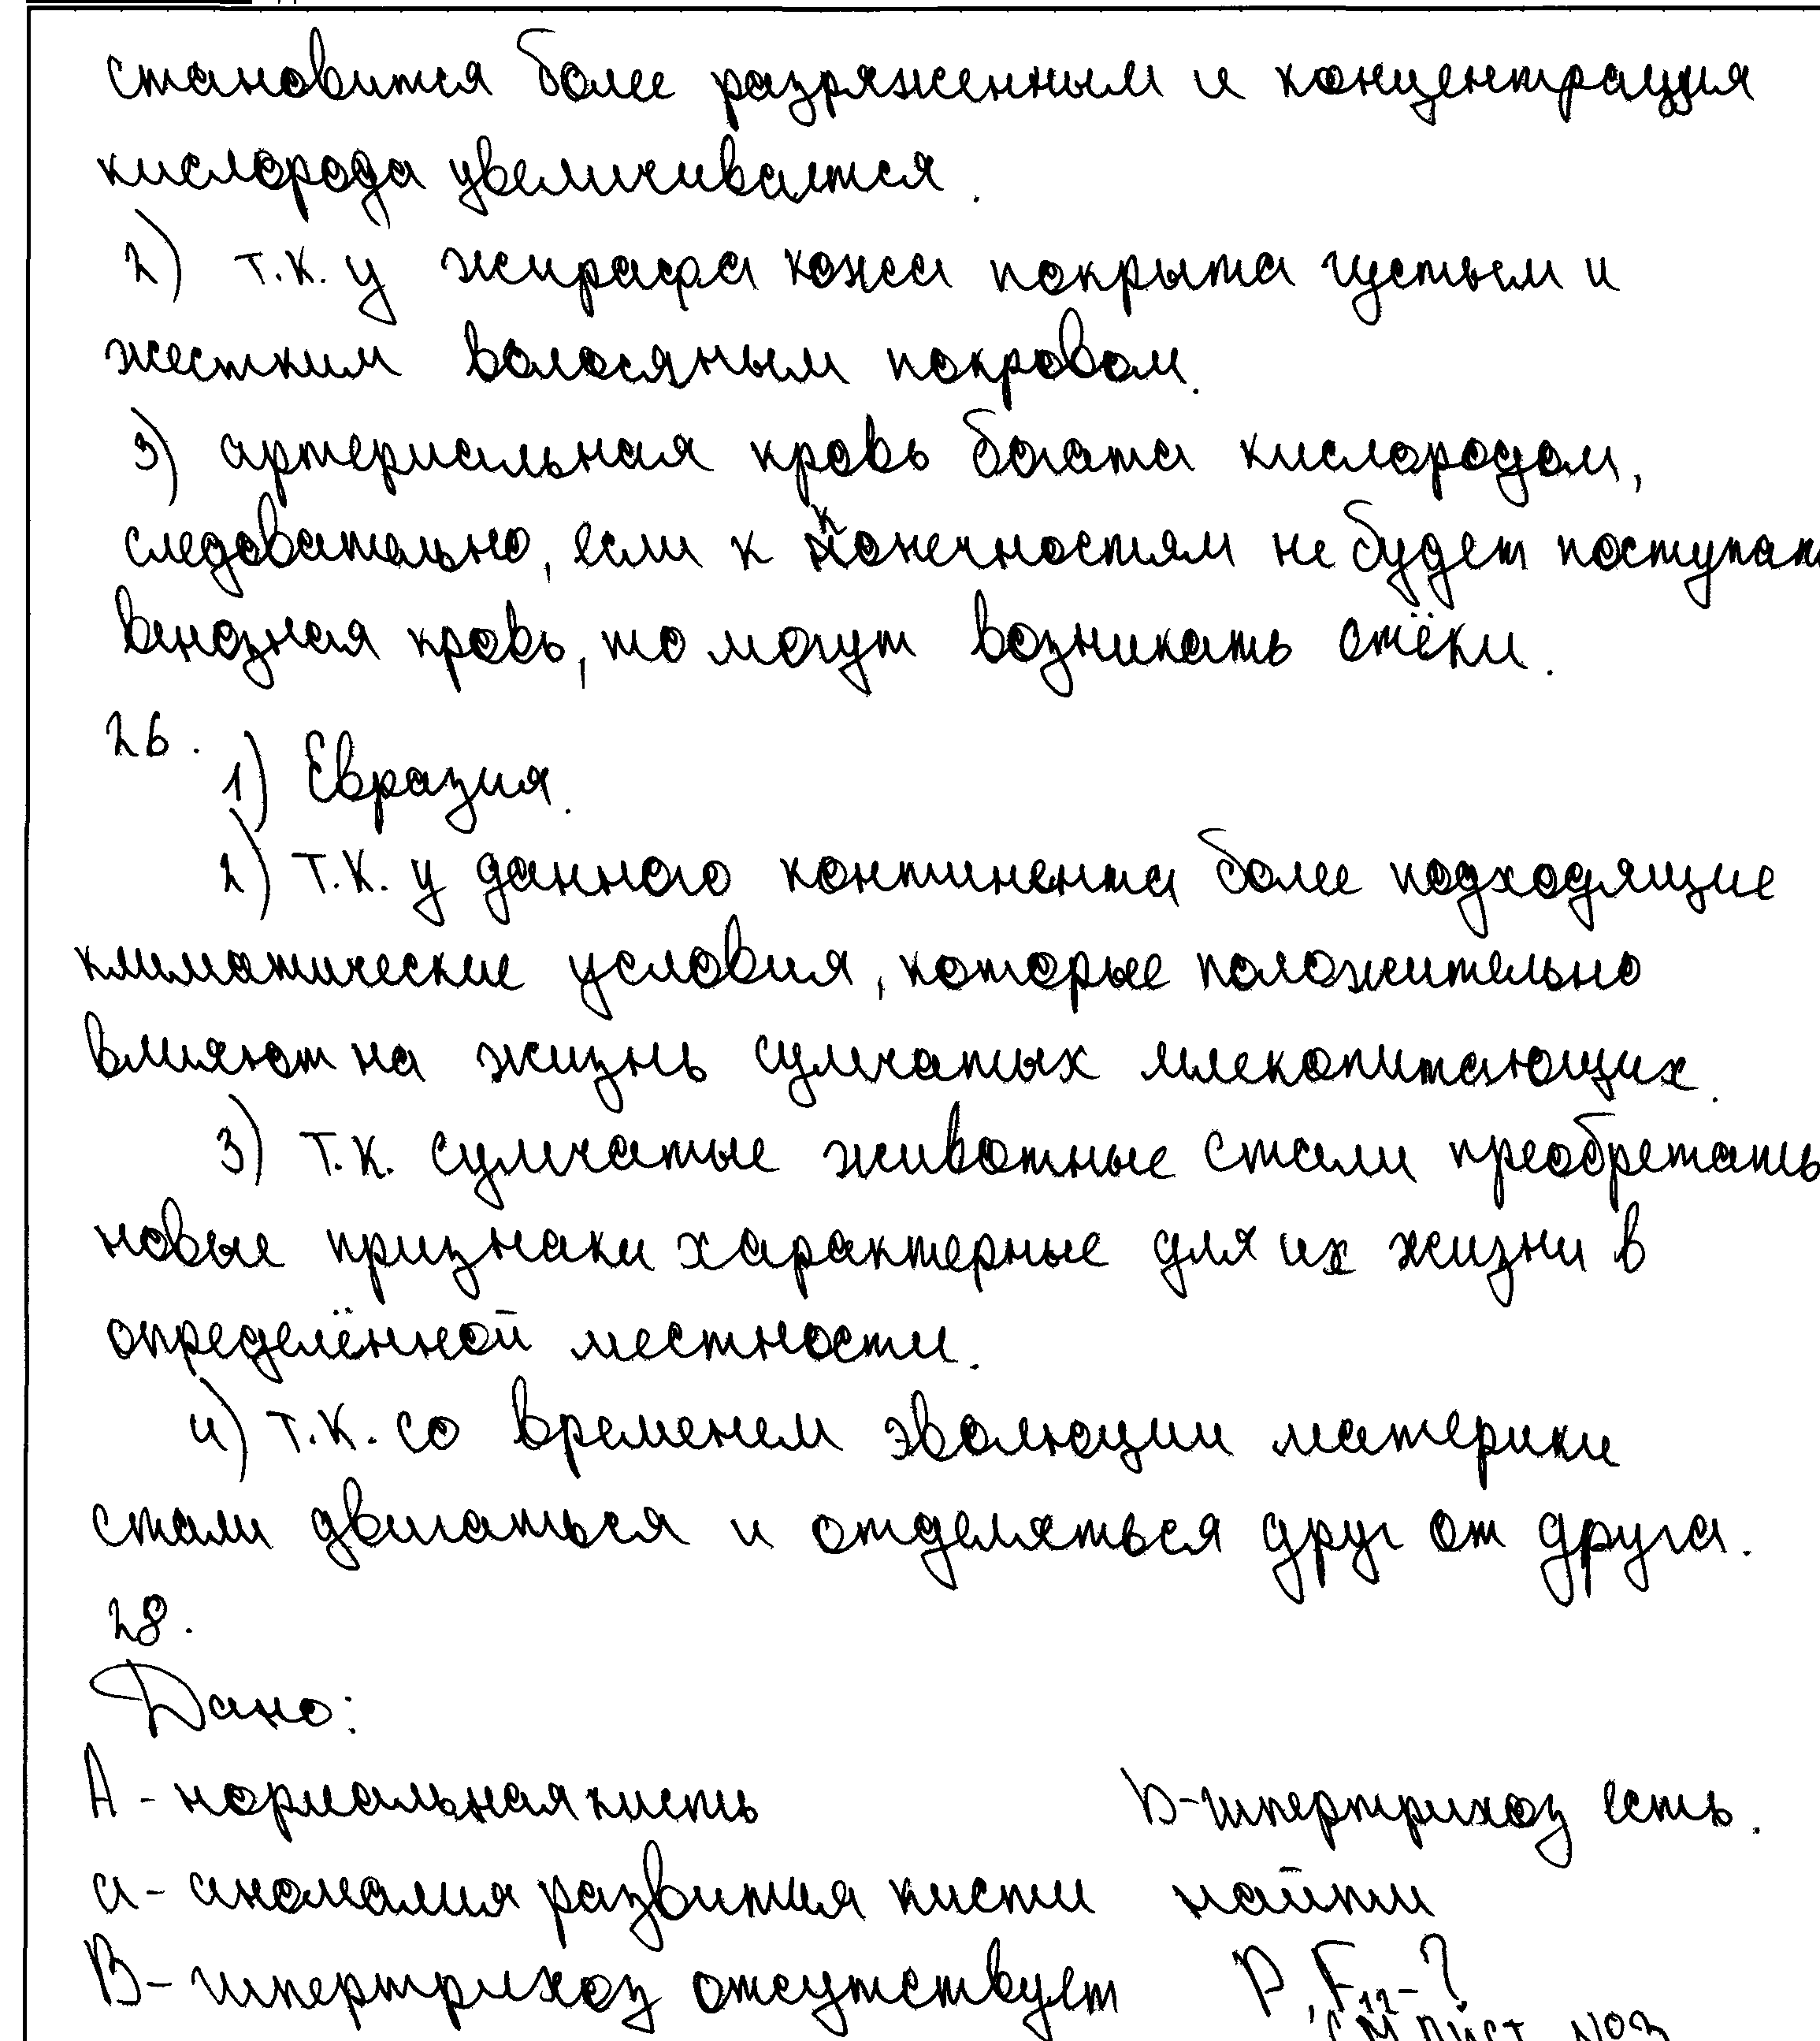 становится более разряженным и концентрация
кислорода увеличивается.
2) т.к. у жирафа кожа покрыта густым и
жестким волосяным покровом.
3) артериальная кровь богата кислородом,
следовательно, если к конечностям не будет поступат
венозная кровь, то могут возникать отёки.
26.
1) Евразия.
2) т.к. у данного континента более подходящие
климатические условия, которые положительно
влияют на жизнь сумчатых млекопитающих.
3) т.к. сумчатые животные стали преобретать
новые признаки характерные для их жизни в
определённой местности.
4) т.к. со временем эволюции материки
стали двигаться и отделяться друг от друга.
28.
Дано:
А - нормальная кисть b - гипертрихоз есть.
а - аномалия развития кисти найти
В - гипертрихоз отсутствует P, F₁₂ - ?
см лист №3